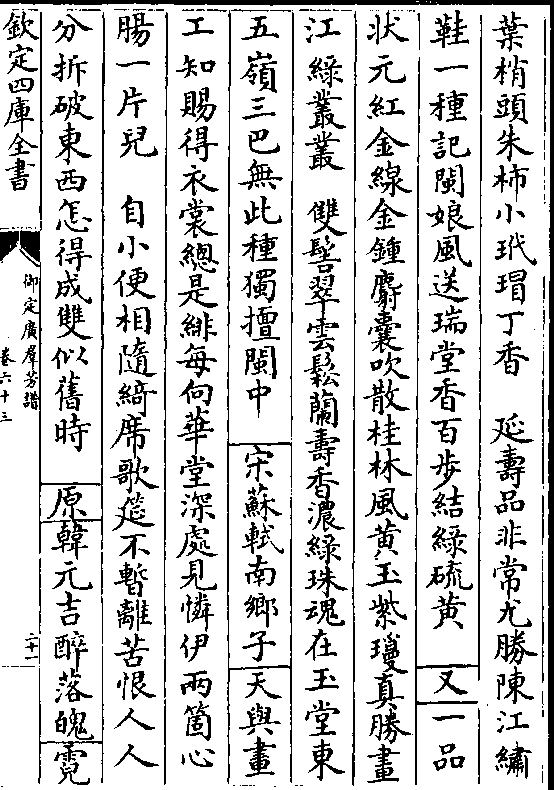 葉梢頭朱柿小玳瑁丁香　延壽品非常尤勝陳江繡
鞋一種記閩娘風送瑞堂香百步結綠硫黄　又一品
狀元紅金線金鍾麝囊吹散桂林風黄玉紫瓊真勝畫
江綠叢叢　雙髻翠雲鬆蘭壽香濃綠珠魂在玉堂東
五嶺三巴無此種獨擅閩中　宋蘇軾南鄉子天與畫
工知賜得衣裳總是緋每向華堂深處見憐伊兩箇心
腸一片兒　自小便相隨綺席歌筵不暫離苦恨人人
分拆破東西怎得成雙似舊時　原韓元吉醉落魄霓
欽定四庫全書
御定廣羣芳譜
卷六十三
二十一